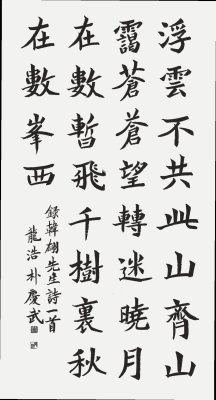 浮雲不共此山齊山
靄蒼蒼望轉迷曉月
在數暫飛千樹裏秋
在數峯西
錄韓翃先生詩一首
龍浩 朴慶武